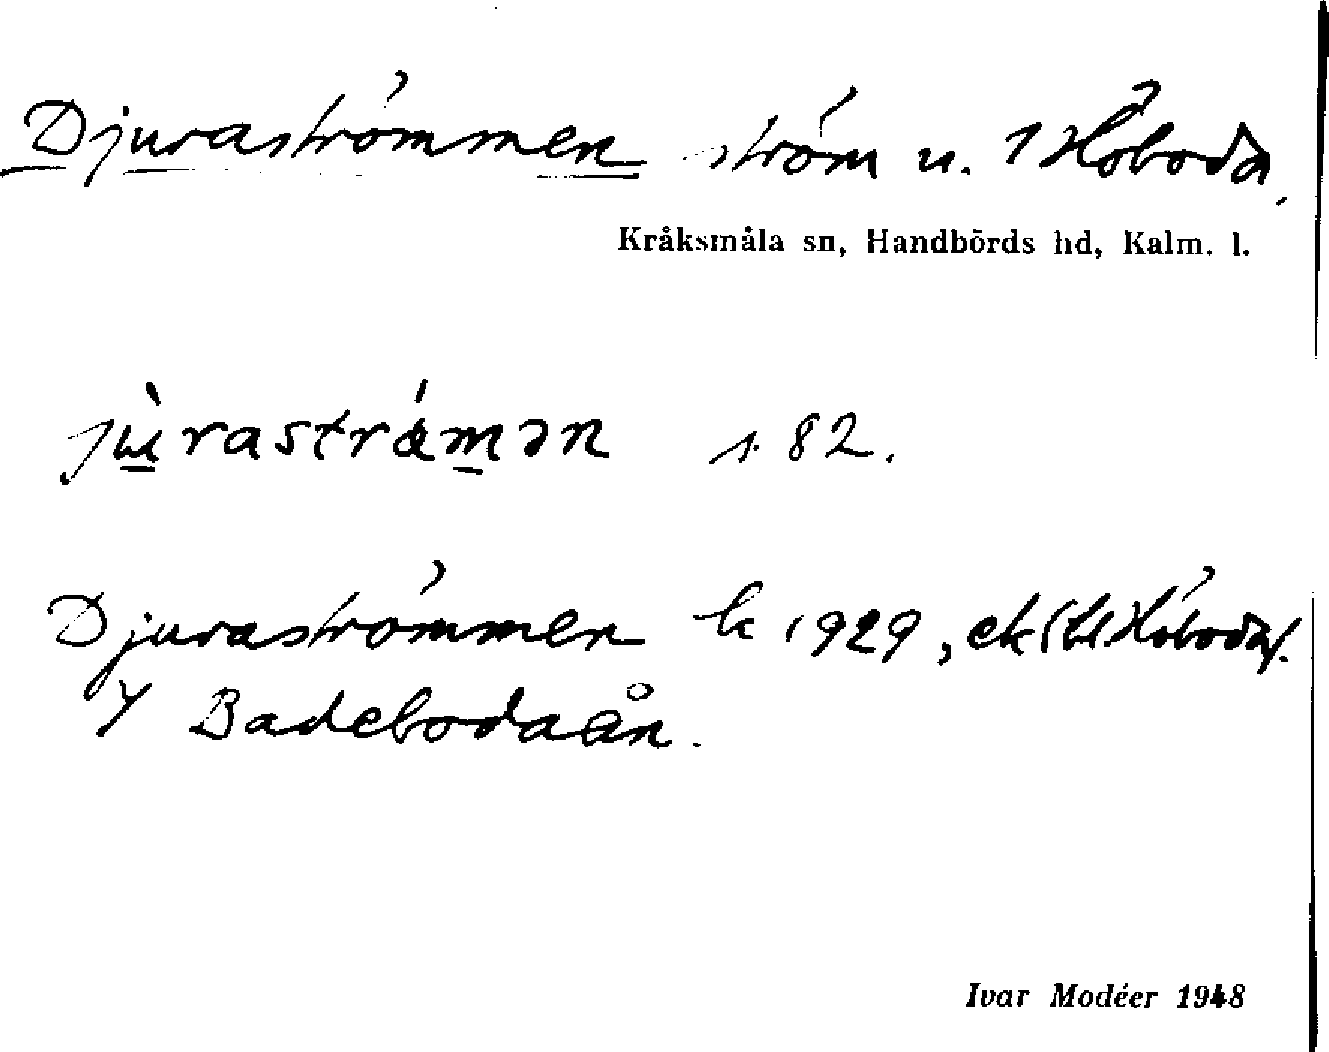 Djuraströmmen ström u. 1 Höboda.
Kråksmåla sn, Handbörds hd, Kalm. l.
jùrastrǽmən s 82.
Djuraströmmen k 1929, ek (bl Höboda).
Y Badebodaån.
Ivar Modéer 1948